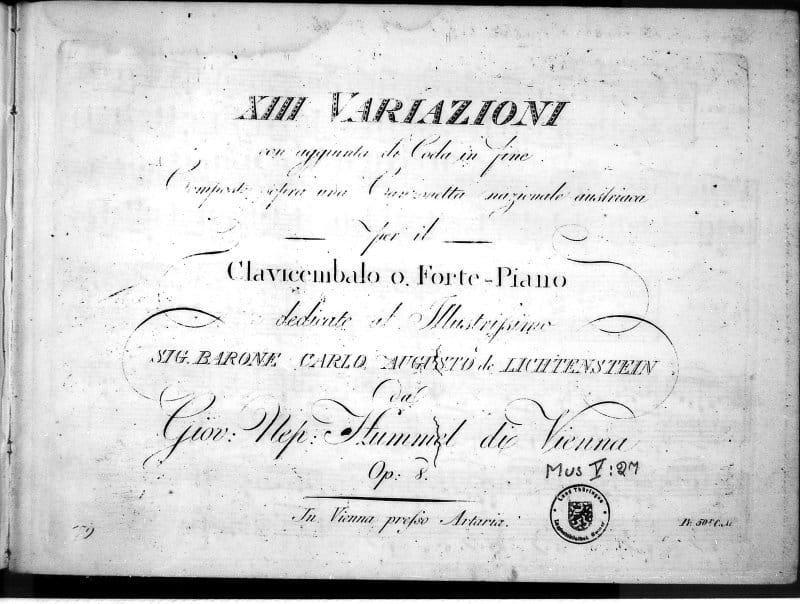 XIII VARIAZIONI
con aggiunta di Coda in fine
Composte sopra una Canzonetta nazionale austriaca
per il
Clavicembalo o, Forte-Piano
dedicate al Illustrissimo
SIG. BARONE CARLO AUGUSTO de LICHTENSTEIN
da
Giov: Nep: Hummel di Vienna
Op: 8.
Mus V:27
In Vienna presso Artaria.
Land Thüringen